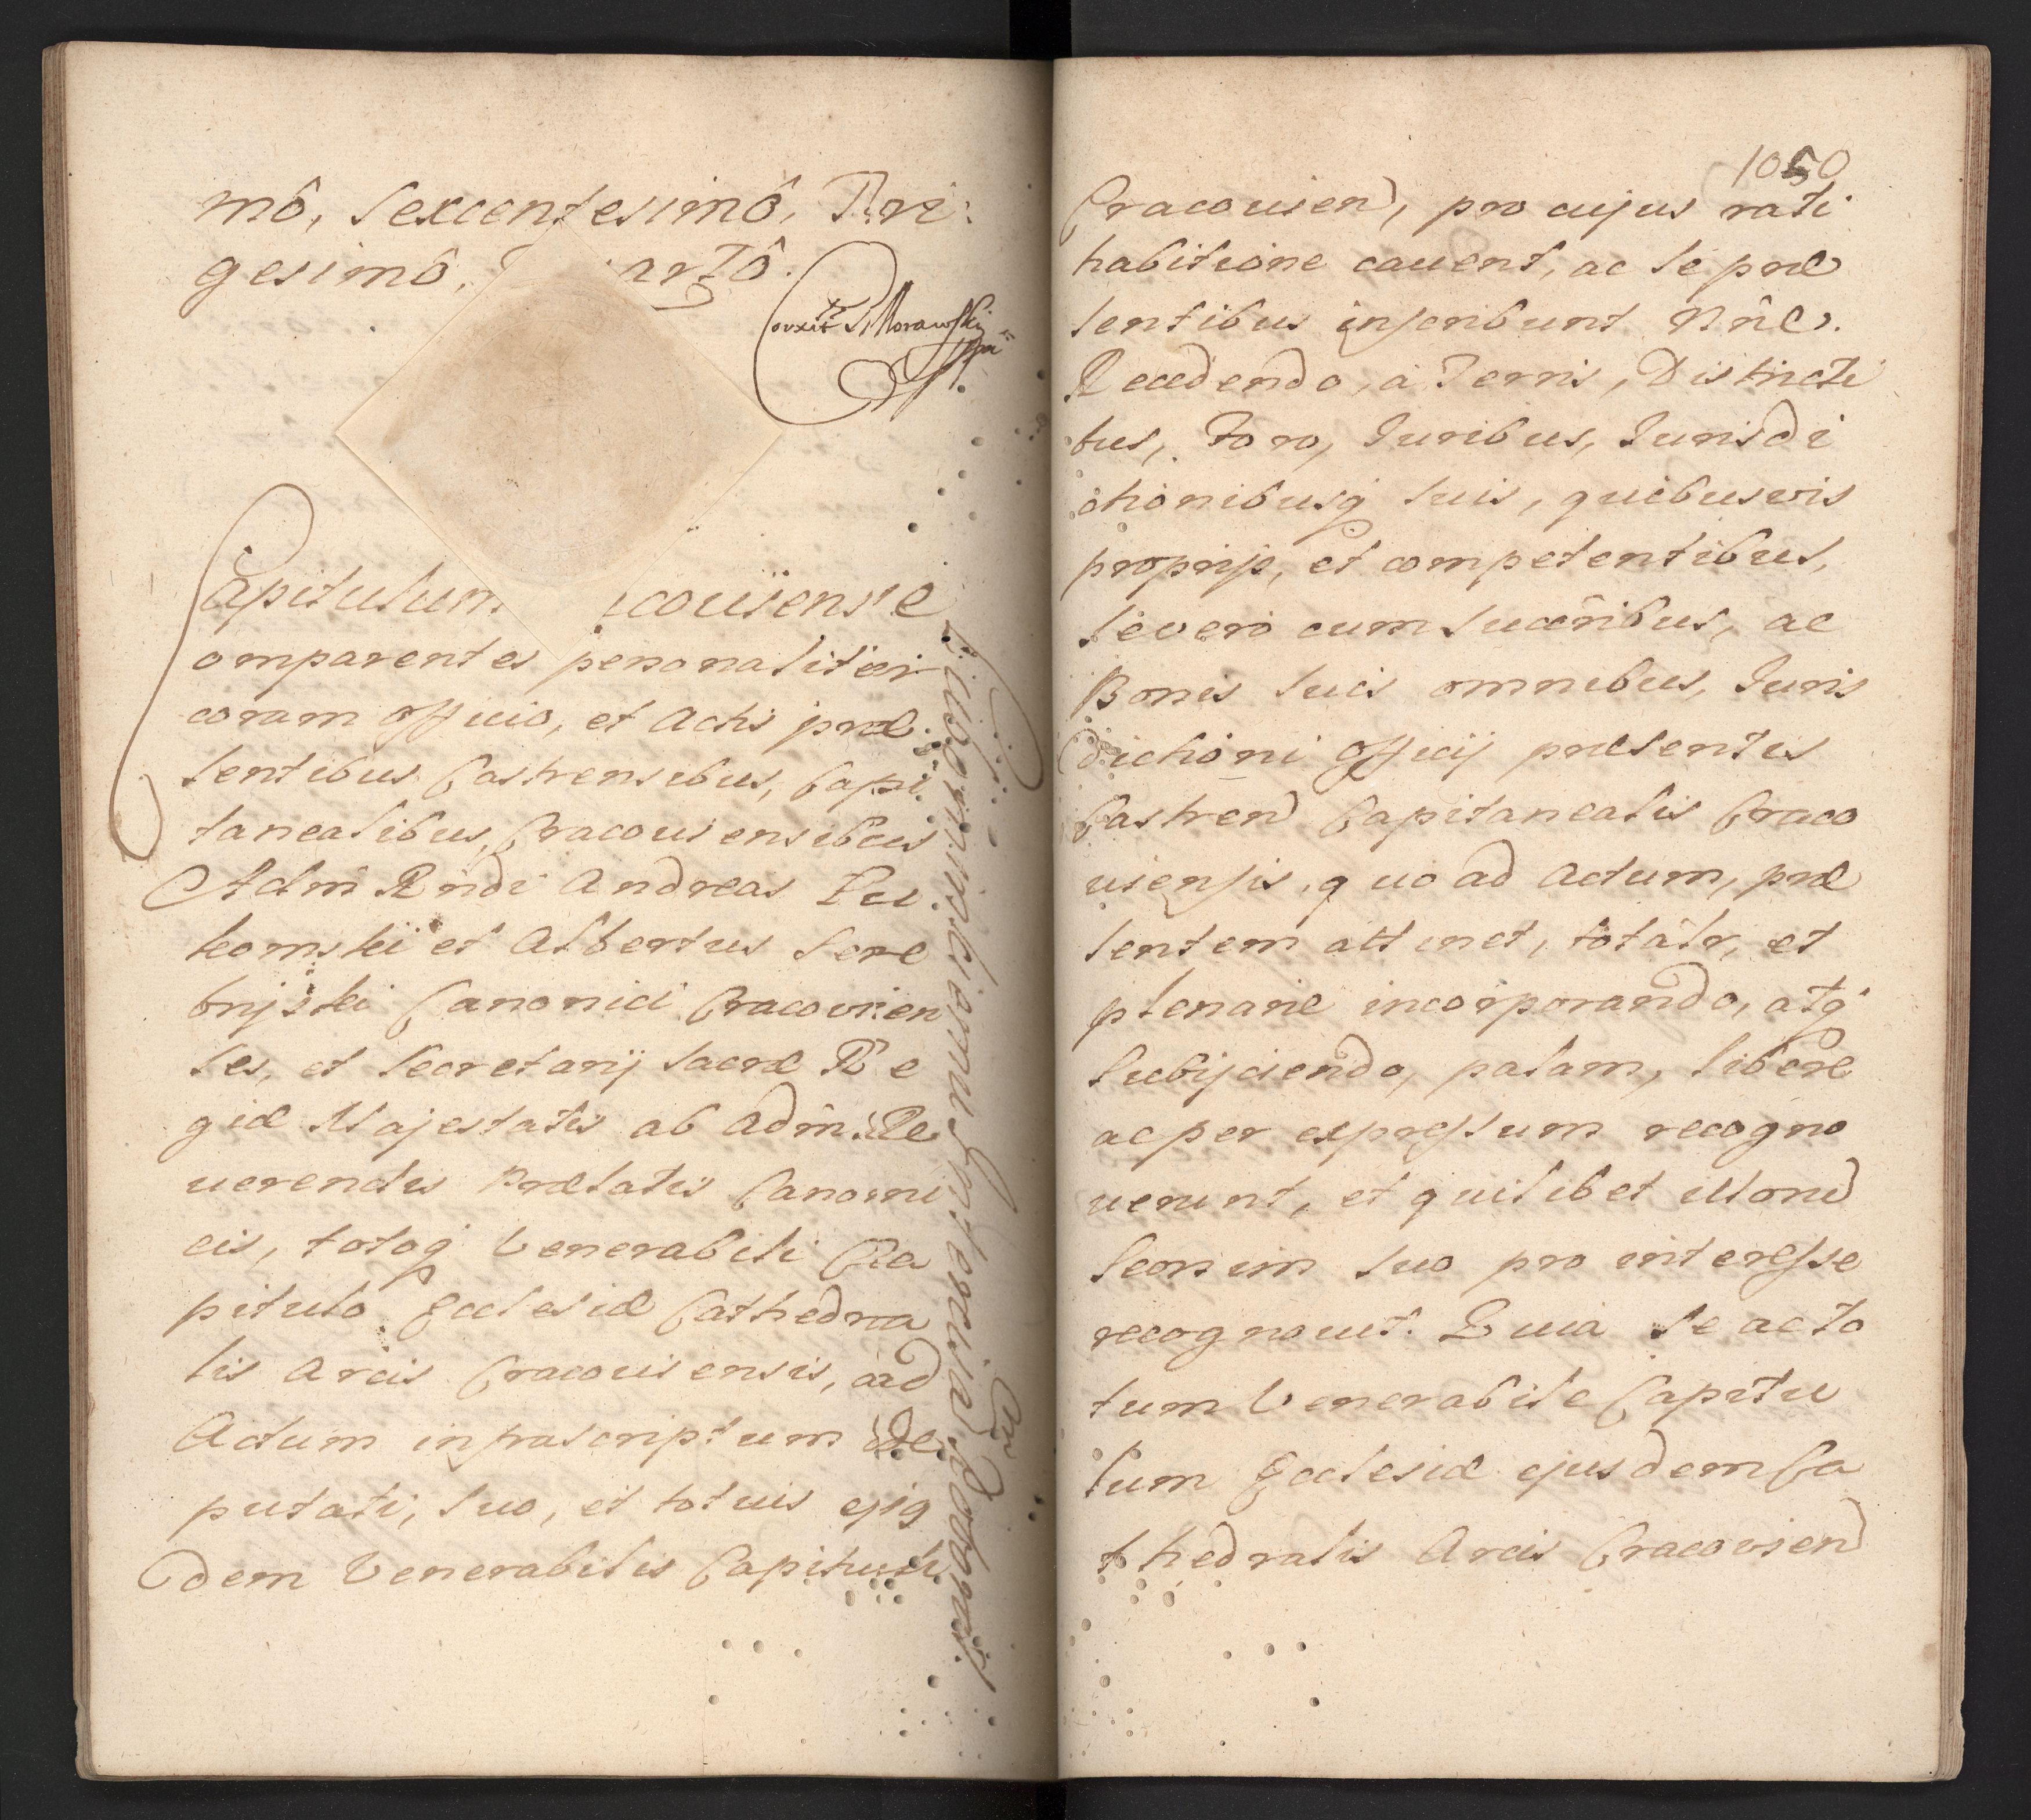 mô, Sexcentesimô, Tri:
gesimô, artô.
Correxit Morawski
mpa
Capitulum coviense
omparentes personaliter
coram officio, et Actis præ
sentibus Castrensibus, Capi
taneatibus, Cracoviensibus
Adm Rndi Andreas Lu
komski et Albertus Sere
bryski Canonici Cracovien
ses, et Secretarij Sacræ Re
giæ Majestatis ab Adm. Re
verendis Prælatis Canoni
cis, totoq Venerabili Ca
pitulo Ecclesiæ Cathedra
lis Arcis Cracoviensis, ad
Actum infrascriptum de
putati, suo, et totius ejq
dem Venerabilis Capituli
1050
Cracovien, pro cujus rati
habitione cavent, ac se præ
sentibus inscribunt Nñe.
Recedendo, à Terris, Districti
bus, Foro, Juribus, Jurisdi
ctionibusq suis, quibusvis
proprijs, et competentibus,
se vero cum succribus, ac
Bonis suis omnibus, Juris
dictioni Officij præsentis
Castren Capitanealis Craco
viensis, quo ad Actum, præ
sentem attinet, totalr, et
plenarie incorporando, atq
subijciendo, palam, libere
ac per expressum recogno
verunt, et quilibet illorum
seorsim suo pro interesse
recognovit. Quia se ac to
tum Venerabile Capitu
lum Ecclesiæ ejusdem Ca
thedralis Arcis Cracovien